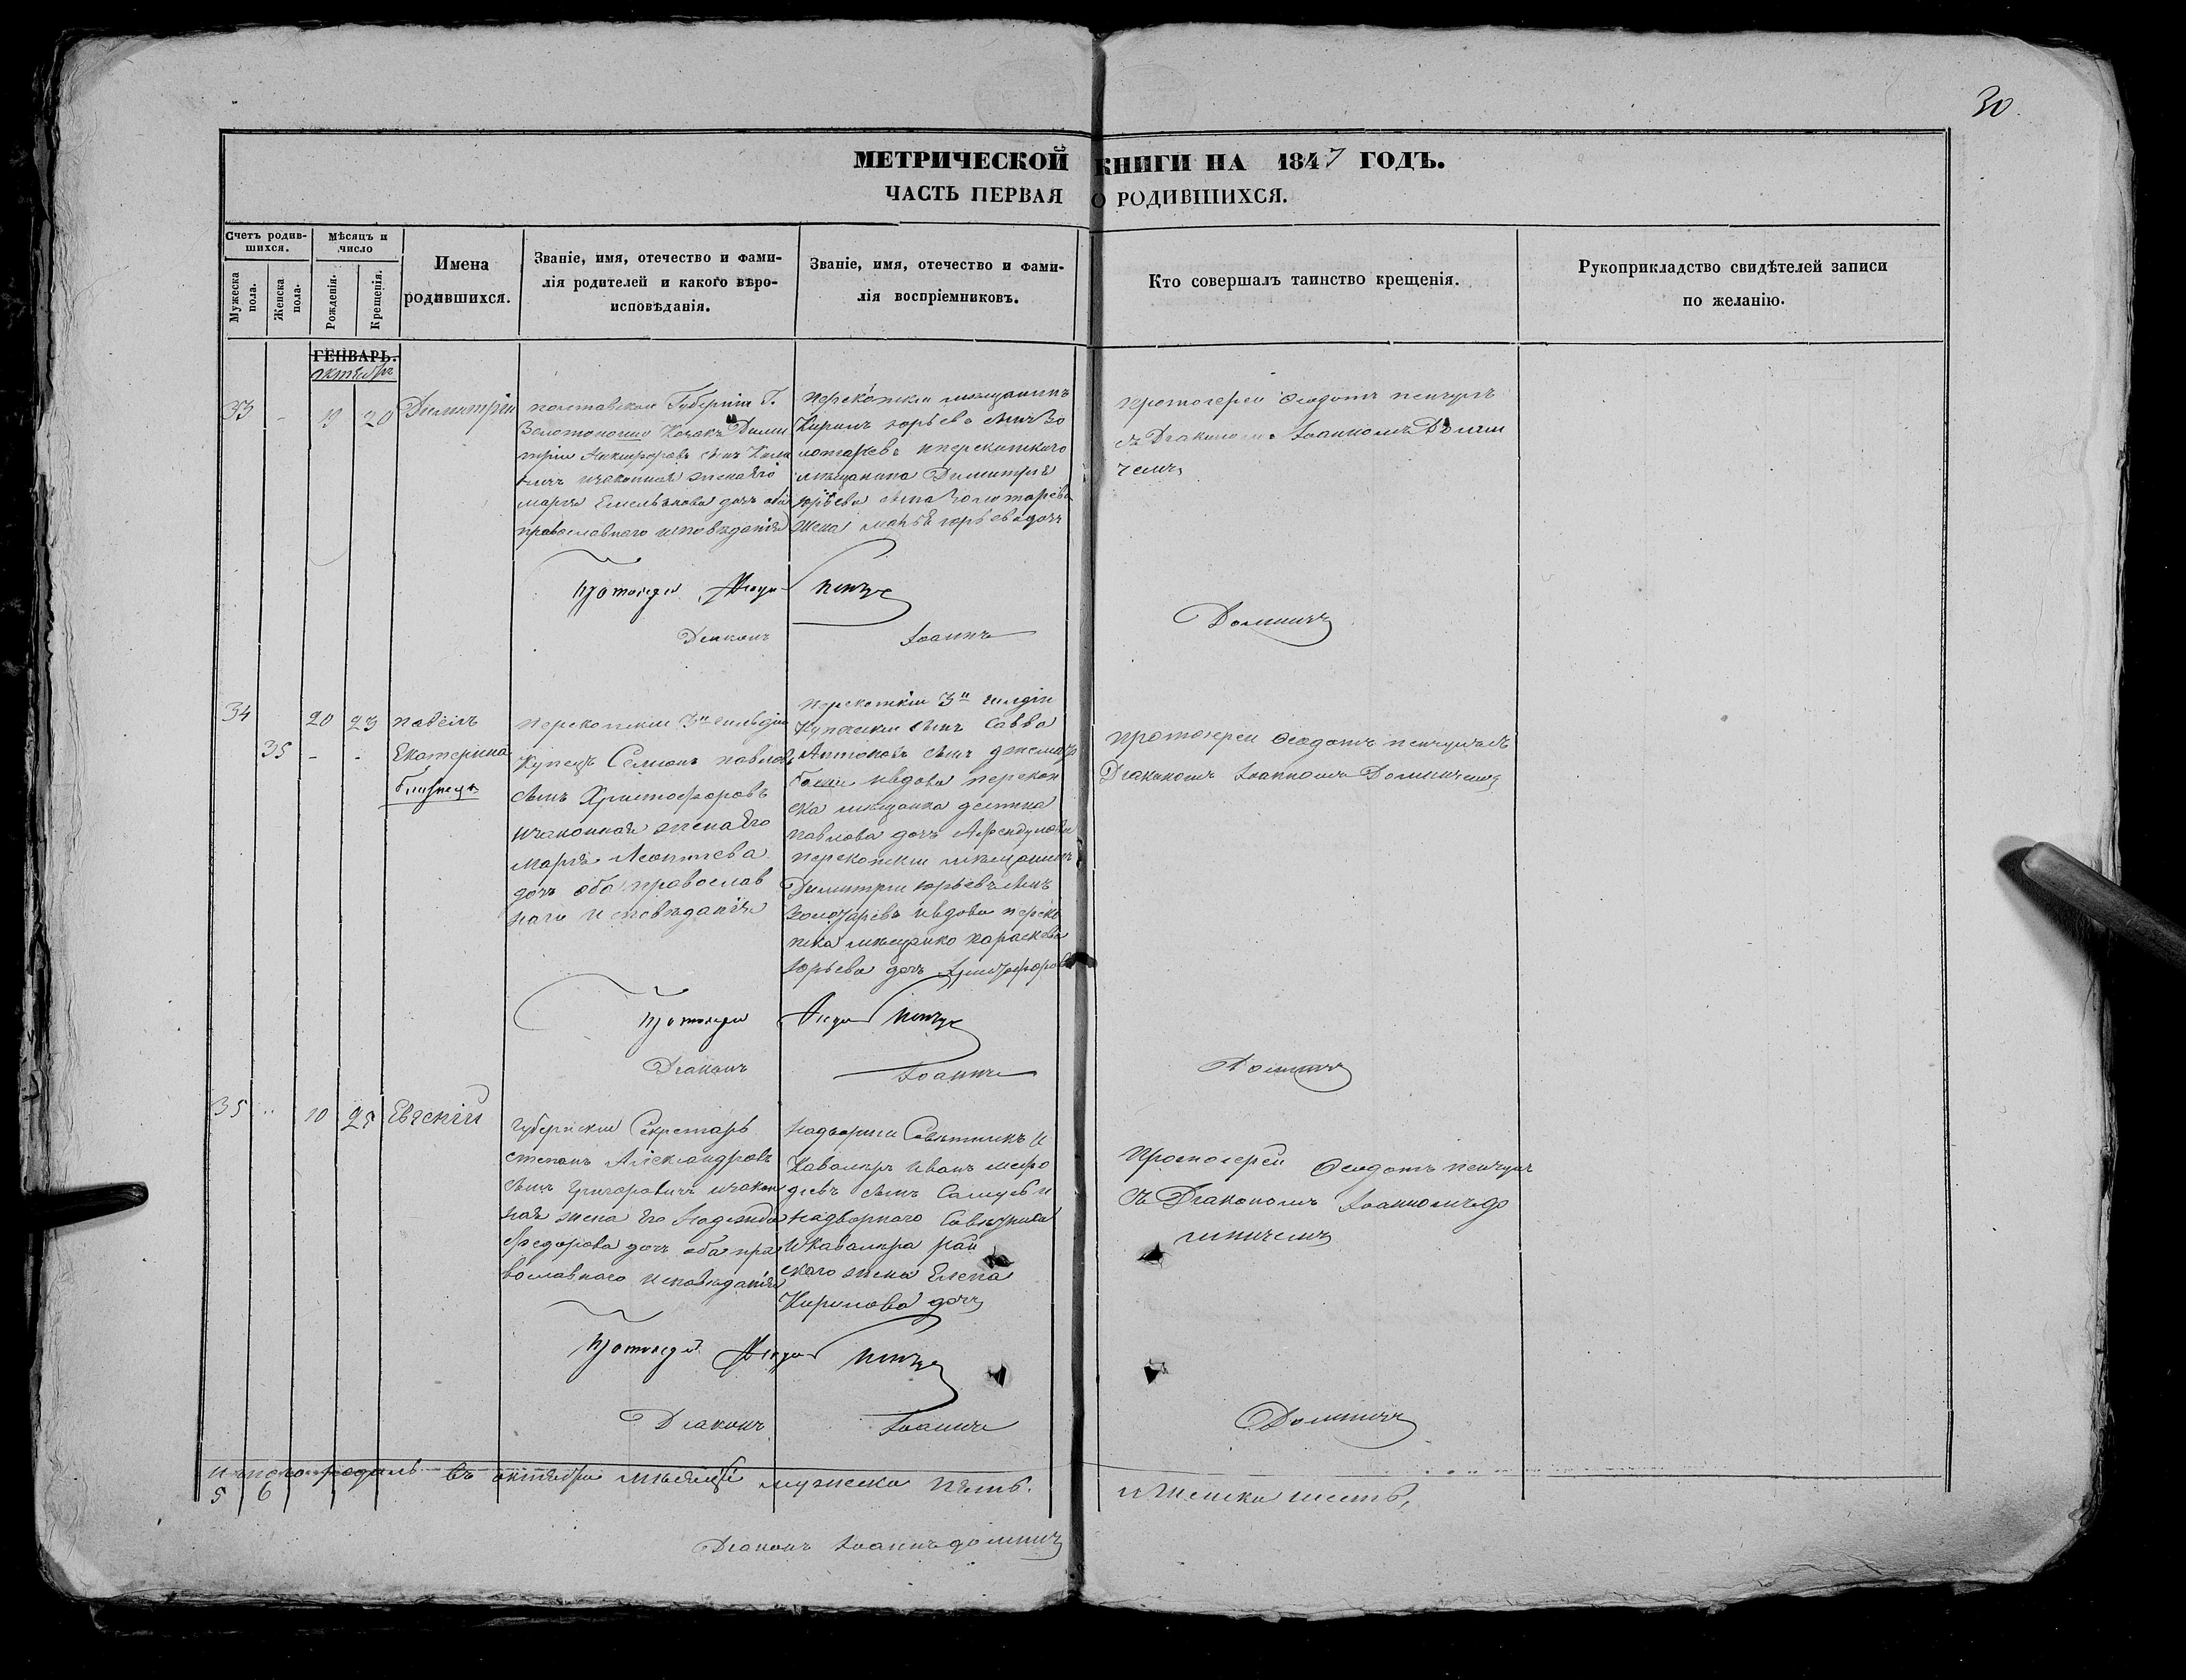 30.
МЕТРИЧЕСКОЙ КНИГИ НА 1847 ГОДЪ.
ЧАСТЬ ПЕРВАЯ О РОДИВШИХСЯ.
Счетъ родив-
шихся.
Мужеска пола.
Женска пола.
Мѣсяцъ и число
Рожденія.
Крещенія.
Имена
родившихся.
Званіе, имя, отечество и фами-
лія родителей и какого вѣро-
исповѣданія.
Званіе, имя, отечество и фами-
лія воспріемниковъ.
Кто совершалъ таинство крещенія.
Рукоприкладство свидѣтелей записи
по желанію.
ГЕНВАРЬ.
октябрь
33 - 19 20 Димитрій
полтавскои Губерніи Г.
Золотоношо Козакъ Дими
трии Никифоровъ сынъ
изаконная жена Его
марія Емельянова дочь оба
православнаго исповѣданія
перекопскіи мещанинъ
Кирилъ юрьевъ сынъ Зо
лотаревъ иперекопскаго
мѣщанина Димитрия
юрьева сына Золотарева
жена юрьева дочь
протоіереи Феодотъ пенчулъ
съ Диакономъ Іоанномъ Доли
чемъ
Протоіереи Феодотъ Пенчулъ
Диаконъ Іоаннъ
34 20 23 павелъ
35 - - Екатерина
близнецы
перекопскіи 3й гильдіи
Купецъ Семионъ павловъ
сынъ Христофоровъ
изаконная жена Его
Марія Леонтиева
дочь оба православ
наго исповѣданія
перекопскіи 3й гилдіи
Купеческіи сынъ Савва
Антоновъ сынъ
ивдова перекоп
ска мещанка
павлова дочь Афендулова
перекопскіи мѣщанинъ
Димитріи юрьевъ сынъ
Золотаревъ ивдова переко
пска мѣщанка параскева
юрьева дочь Христофорова
протоіереи Феодотъ пенчулъ съ
Диакономъ Іоанномъ
Протоіереи Феодотъ Пенчулъ
Диаконъ Іоаннъ
35 .. 10 25 Евгеній
Губернскіи Секретарь
степанъ Александровъ
сынъ Григоровичъ изакон
ная жена Его Надежда
Федорова дочь оба пра
вославнаго исповѣданія
Надворныи Совѣтникъ и
Кавалеръ Иванъ мефо
диевъ сынъ
Надворнаго Совѣтника
иКавалера рай
скаго жена Елена
Кирилова дочь
Протоіереи Феодотъ пенчулъ
съ Диакономъ Іоанномъ
Протоіереи Феодотъ Пенчулъ
Диаконъ Іоаннъ
итого родилъ въ октябрѣ мѣсяцѣ мужеска пять. и Женска шесть,
5 6
Диаконъ Іоаннъ